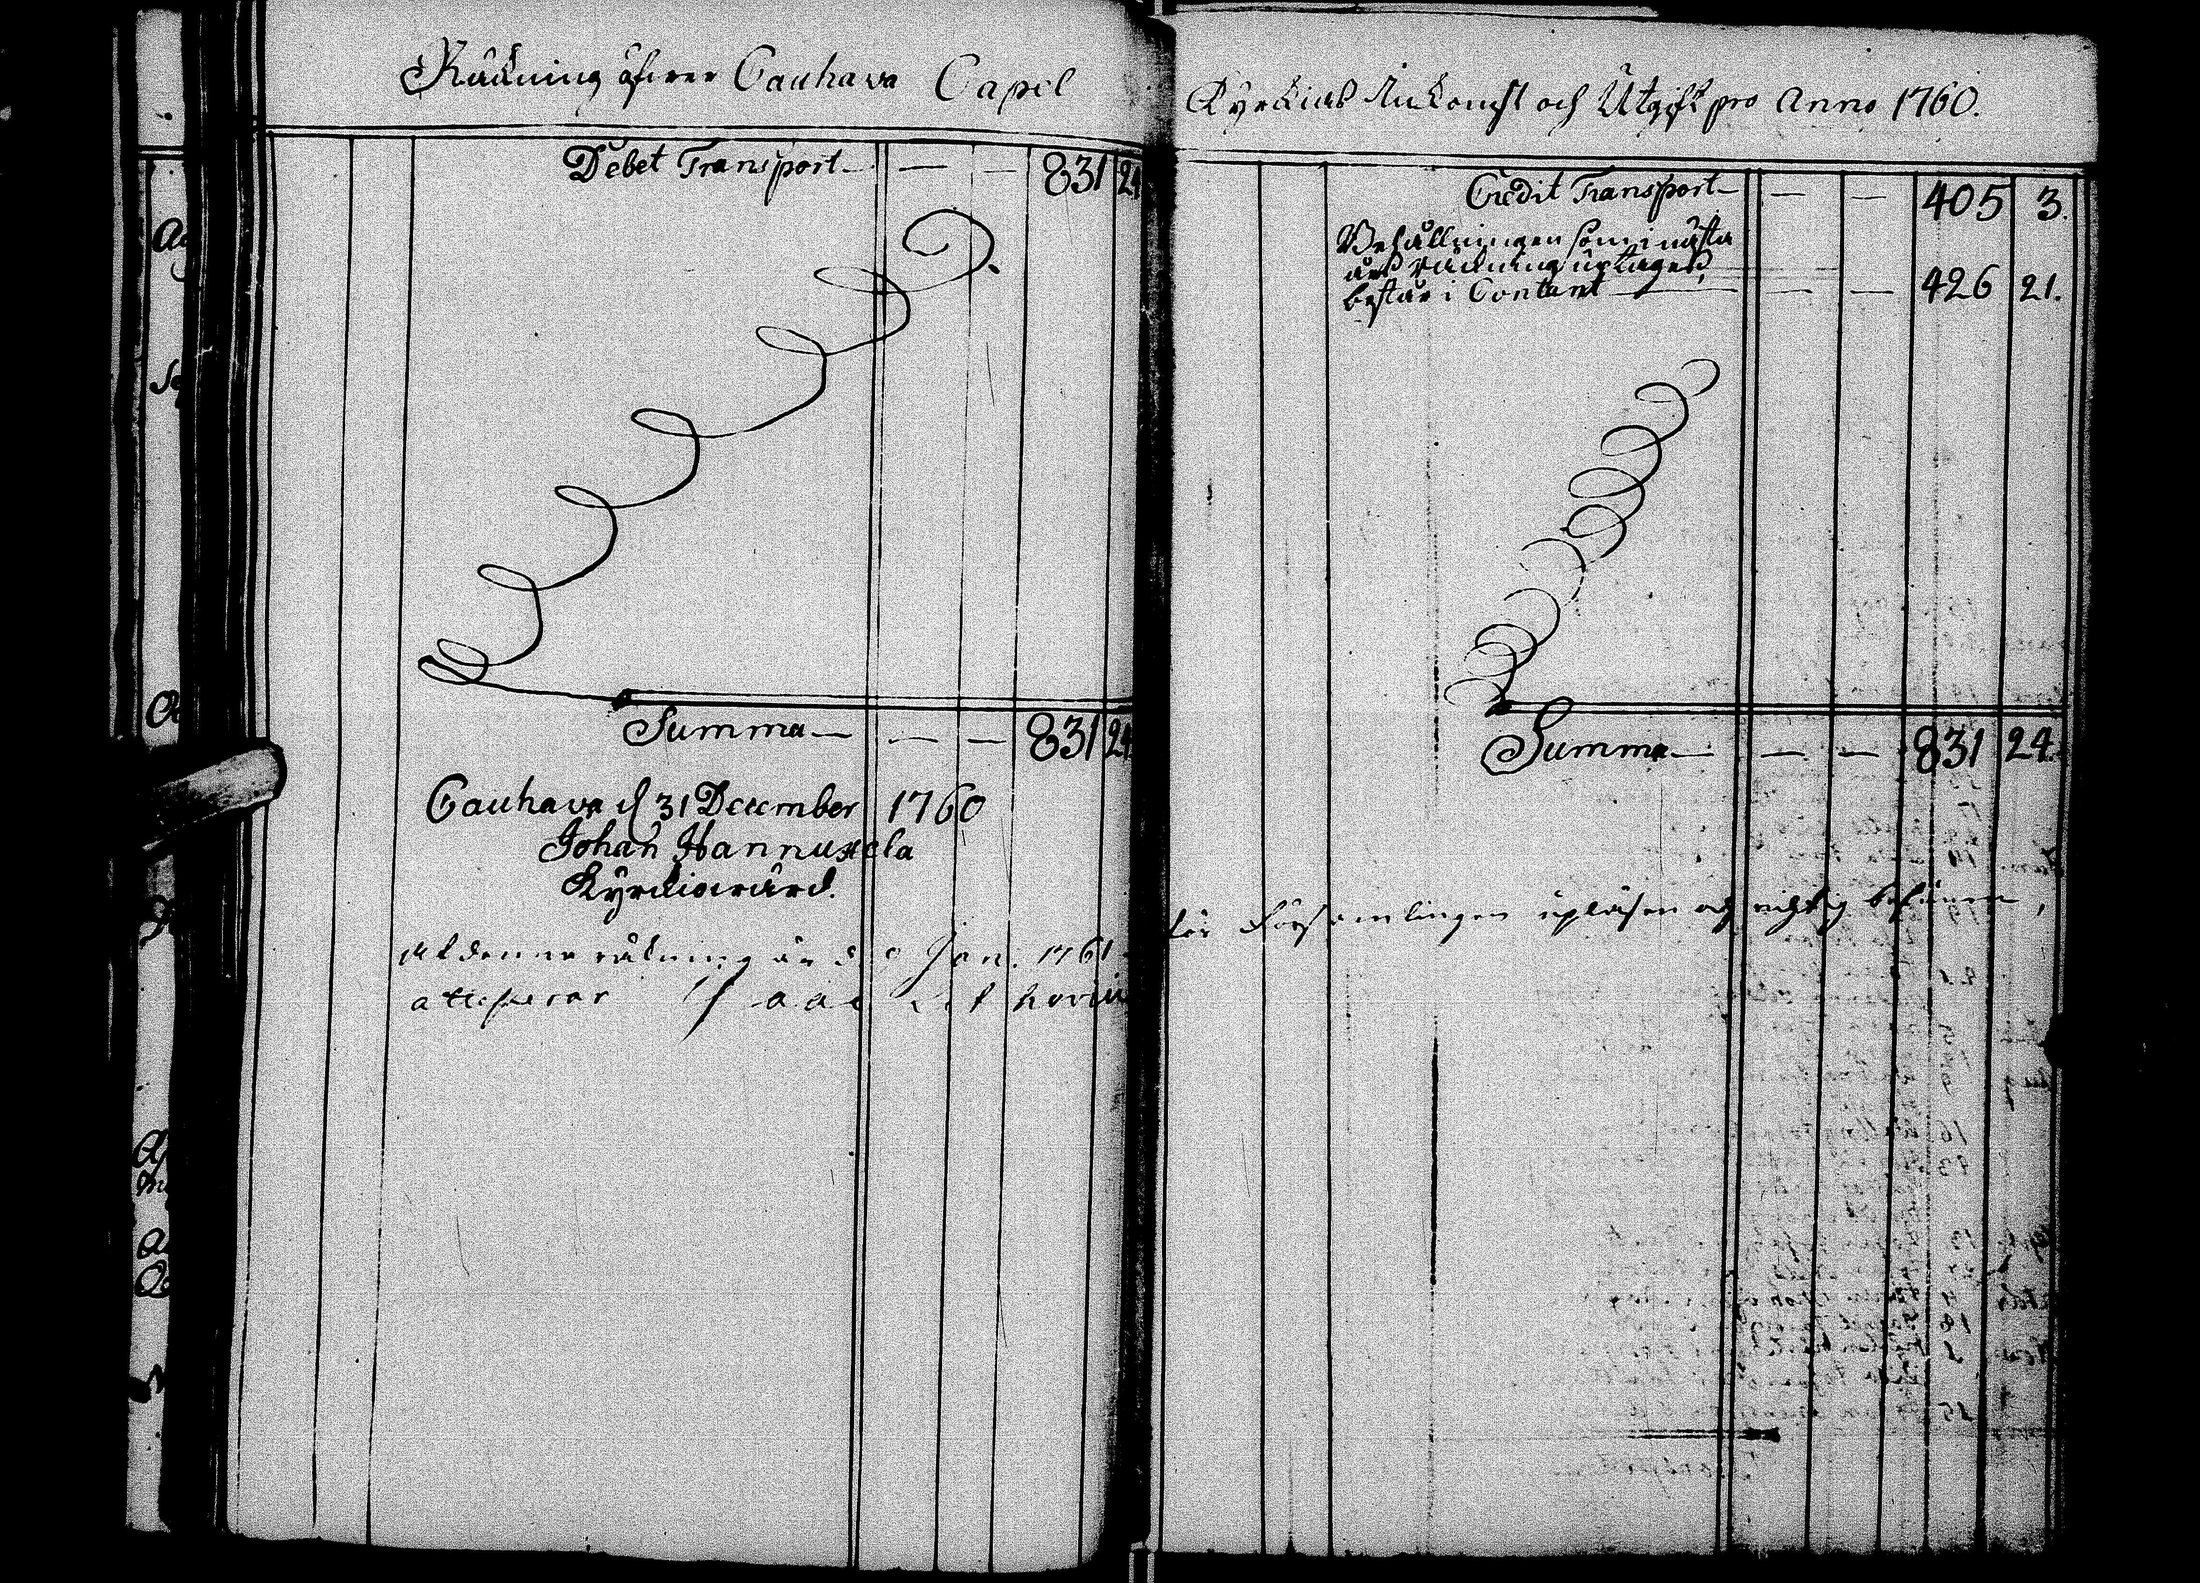 Räckning öfwer Cauhava Capel
Debet Transport — — 831 24
Summa — — 831 24
Cauhava d 31 December 1760
Johan Hannuxela
Kyrckiowärd.
At denna räkning är d Jan. 1761
attesterar Isaac
Kyrckias Inkomst och Utgift pro Anno 1760.
Credit Transport — — 405 3.
Behållningen som i nästa
års räckning uptages,
består i Contant — — 426 21.
Summa — — 831 24.
för Församlingen upläsen och richtig befunnen,